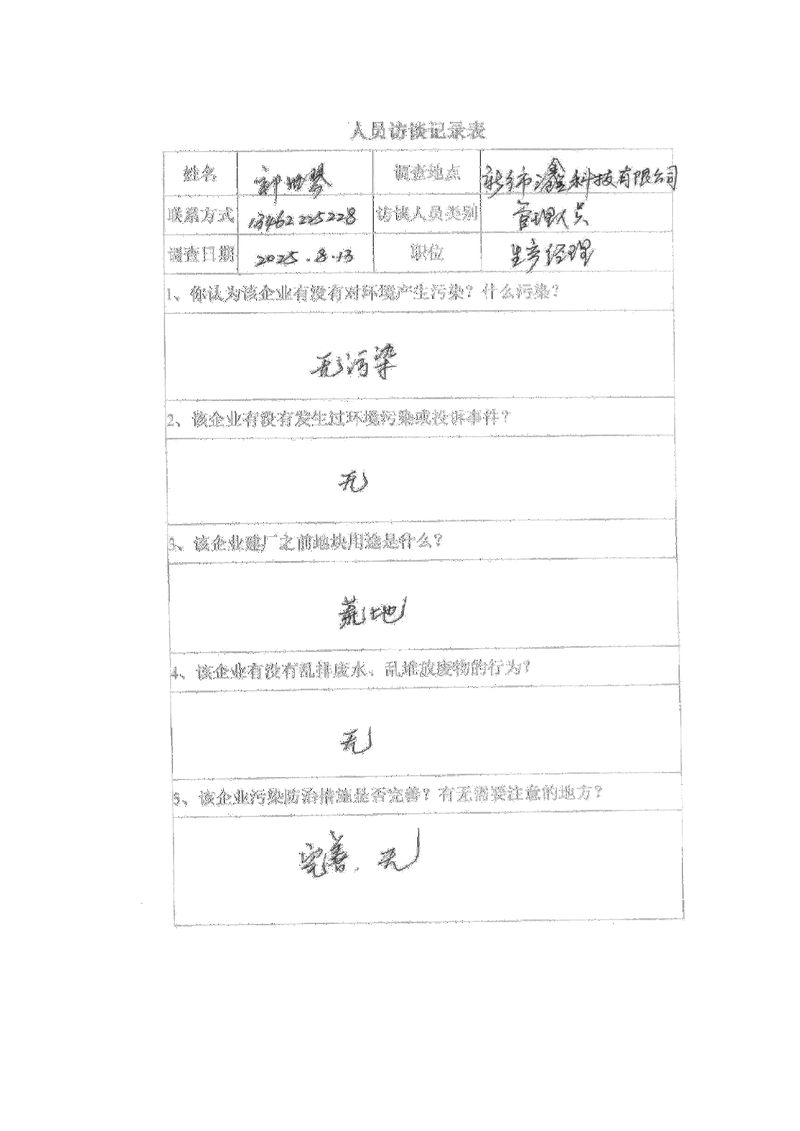 人员访谈记录表
姓名 郭世琴 调查地点 新 鑫科技有限公司
联系方式 13462225228 访谈人员类别 管理人员
调查日期 2025.8.13 职位 生产经理
1、你认为该企业有没有对环境产生污染？什么污染？
无污染
2、该企业有没有发生过环境污染或投诉事件？
无
3、该企业建厂之前地块用途是什么？
荒地
4、该企业有没有乱排废水、乱堆放废物的行为？
无
5、该企业污染防治措施是否完善？有无需要注意的地方？
完善，无